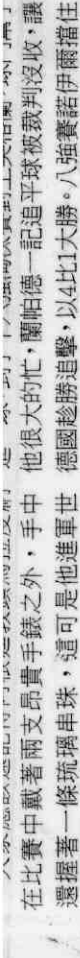 在比賽中戴著兩支昂貴手錶之外，手中
還握著一條琉璃串珠，這可是他進軍世
他很大的忙，蘭帕德一記追平球被裁判沒收，讓
德國趁勝追擊，以4比1大勝。八強賽諾伊爾擋住